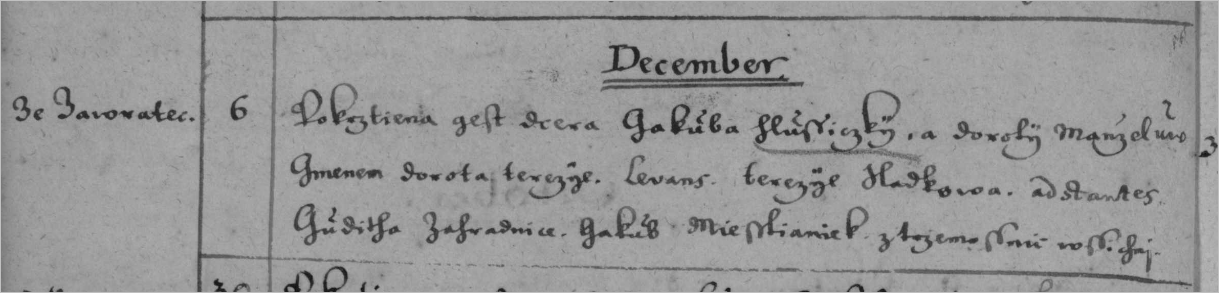 December.
Ze Zavoratec. 6 Pokrztiena gest dcera Gakuba Hlussiczky, a doroty Manzeluw z
Gmenem dorota terezye. Levans. terezye Hladkowa. adstantes.
Guditha Zahradnice. Gakub Miesstianek z trzemossnic wssichni.